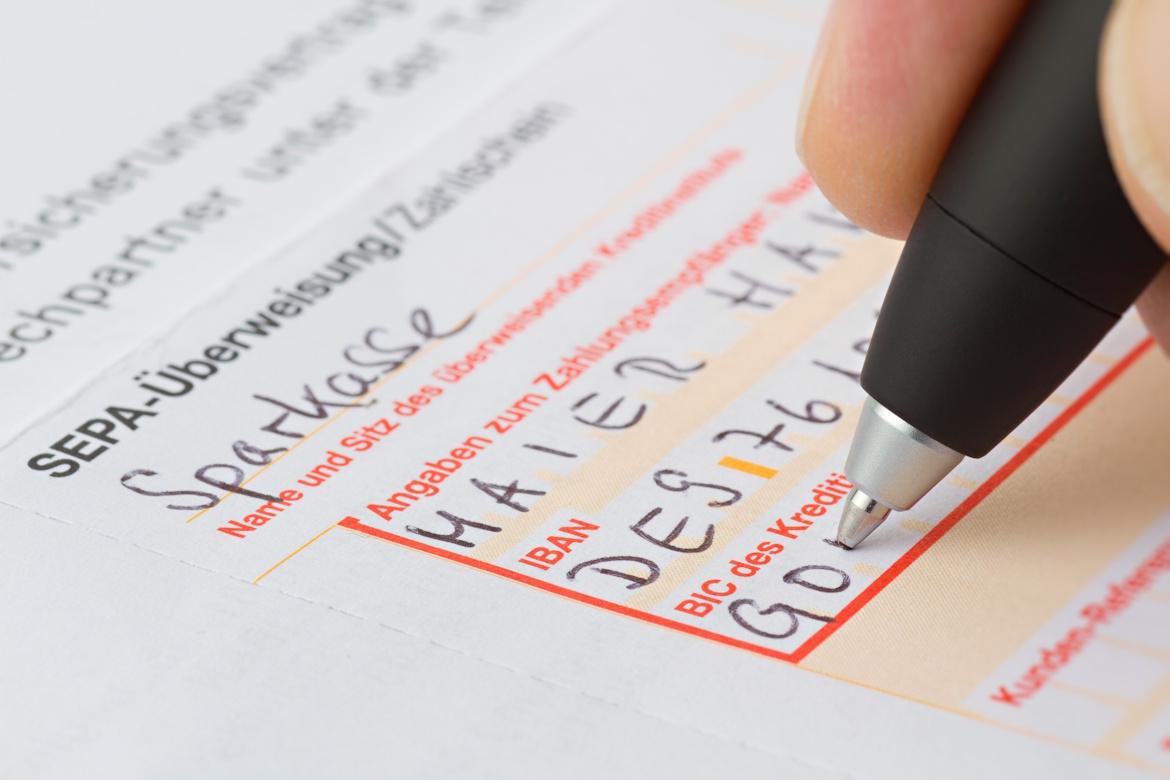 sicherungsvertrag
echpartner unter der
SEPA-Überweisung/Zahlschein
Sparkasse
Name und Sitz des überweisenden Kreditinstituts
Angaben zum Zahlungsempfänger: Na
MAIER HA
IBAN
DE91 76
BIC des Krediti
GO
Kunden-Referen